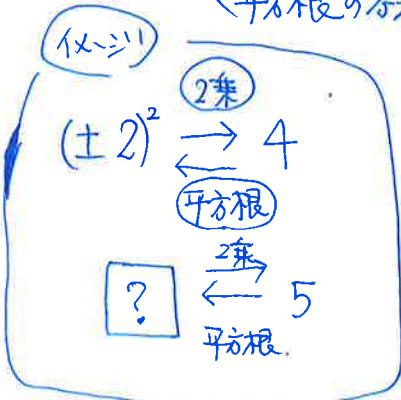 (平方根の
イメージ!
2乗
(±2)² → 4
←
平方根
2乗
? → 5
←
平方根.